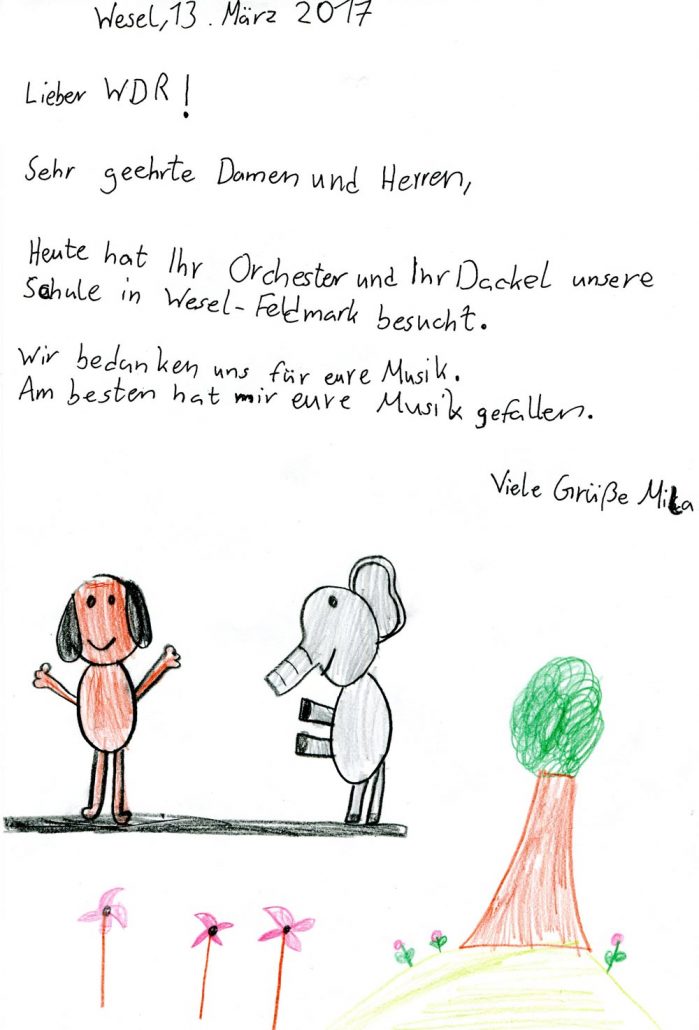 Wesel, 13. März 2017
Lieber WDR!
Sehr geehrte Damen und Herren,
Heute hat Ihr Orchester und Ihr Dackel unsere
Schule in Wesel-Feldmark besucht.
Wir bedanken uns für eure Musik.
Am besten hat mir eure Musik gefallen.
Viele Grüße Mika